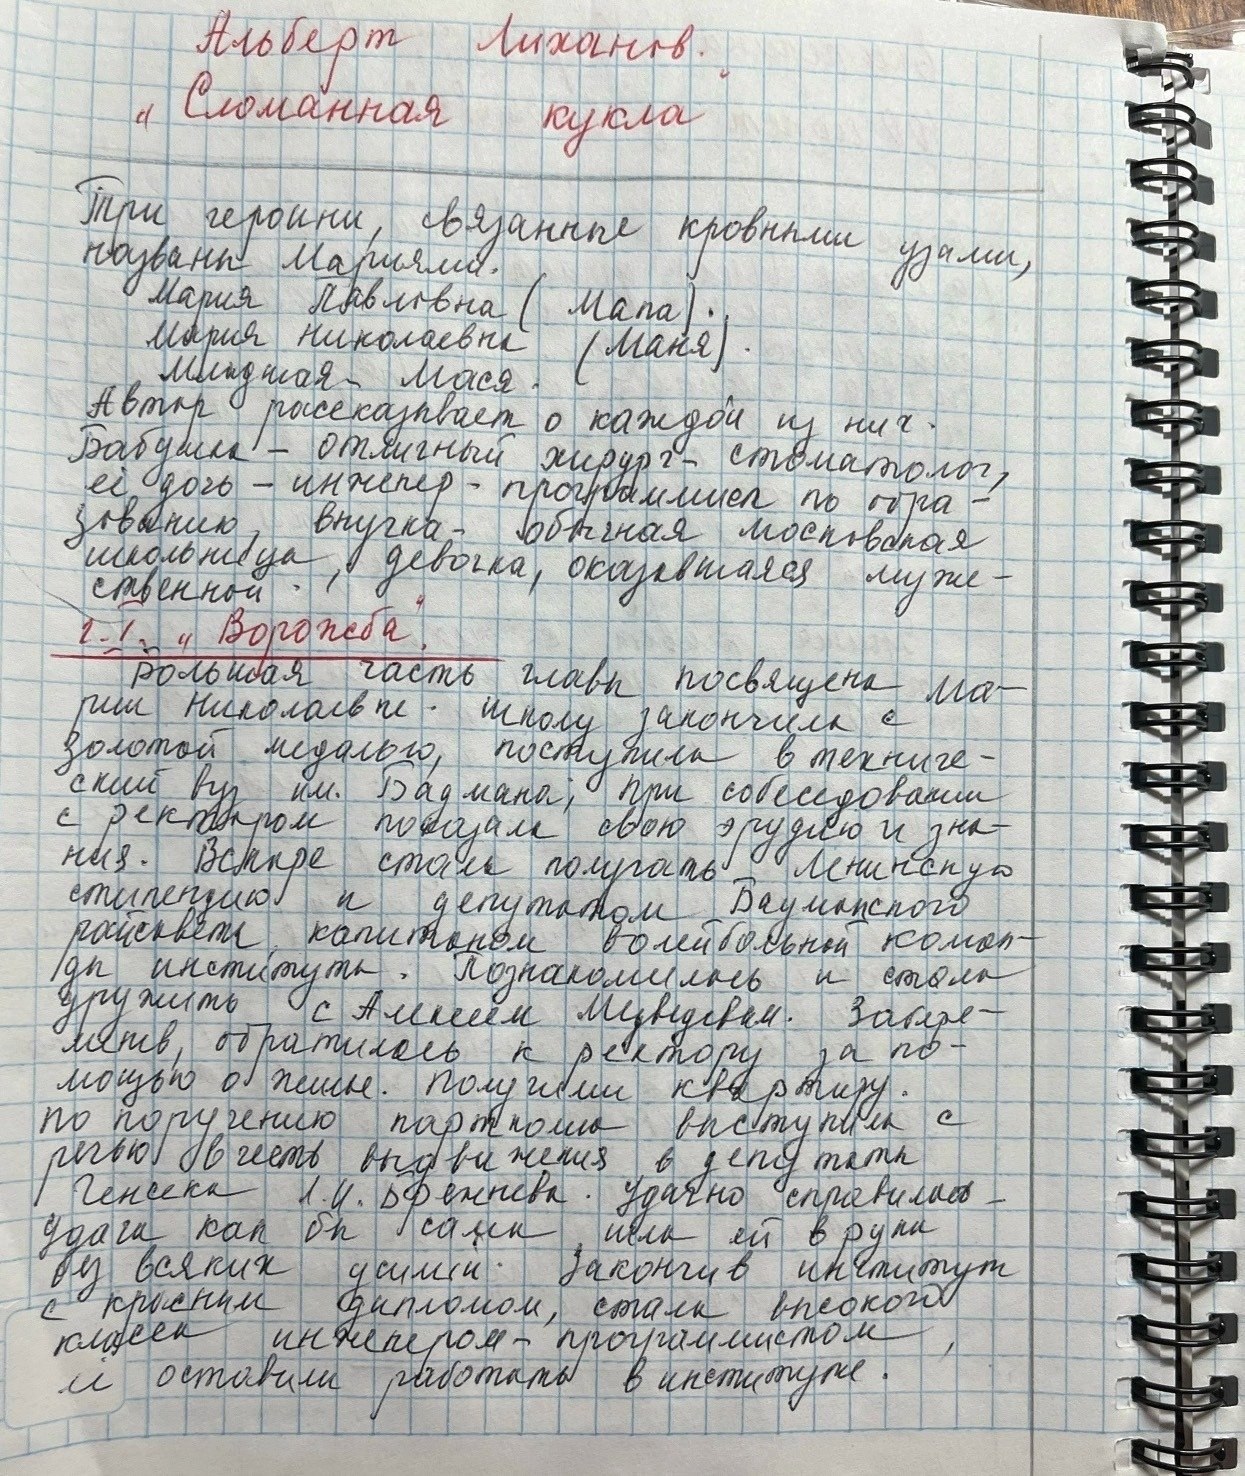 Альберт Лиханов.
„Сломанная кукла"
Три героини, связанные кровными узами,
названы Мариями.
Мария Павловна (Мапа).
Мария Николаевна (Маня).
Младшая - Мася.
Автор рассказывает о каждой из них.
Бабушка - отличный хирург-стоматолог,
её дочь - инженер-программист по обра-
зованию, внучка - обычная московская
школьница, девочка, оказавшаяся муже-
ственной.
1.1. „Ворожба".
Большая часть главы посвящена Ма-
рии Николаевне. Школу закончила с
золотой медалью, поступила в техниче-
ский вуз им. Баумана, при собеседовании
с ректором показала свою эрудию и зна-
ния. Вскоре стала получать Ленинскую
стипендию и депутатом Бауманского
райсовета, капитаном волейбольной коман-
ды института. Познакомилась и стала
дружить с Алексеем Медведевым. Забере-
менев, обратилась к ректору за по-
мощью о жилье. Получили квартиру.
По поручению парткома выступила с
речью в честь выдвижения в депутаты
Генсека Л.И. Брежнева. Удачно справилась -
удача как бы сама шла ей в руки
без всяких усилий. Закончив институт
с красным дипломом, стала высокого
класса инженером-программистом,
её оставили работать в институте.